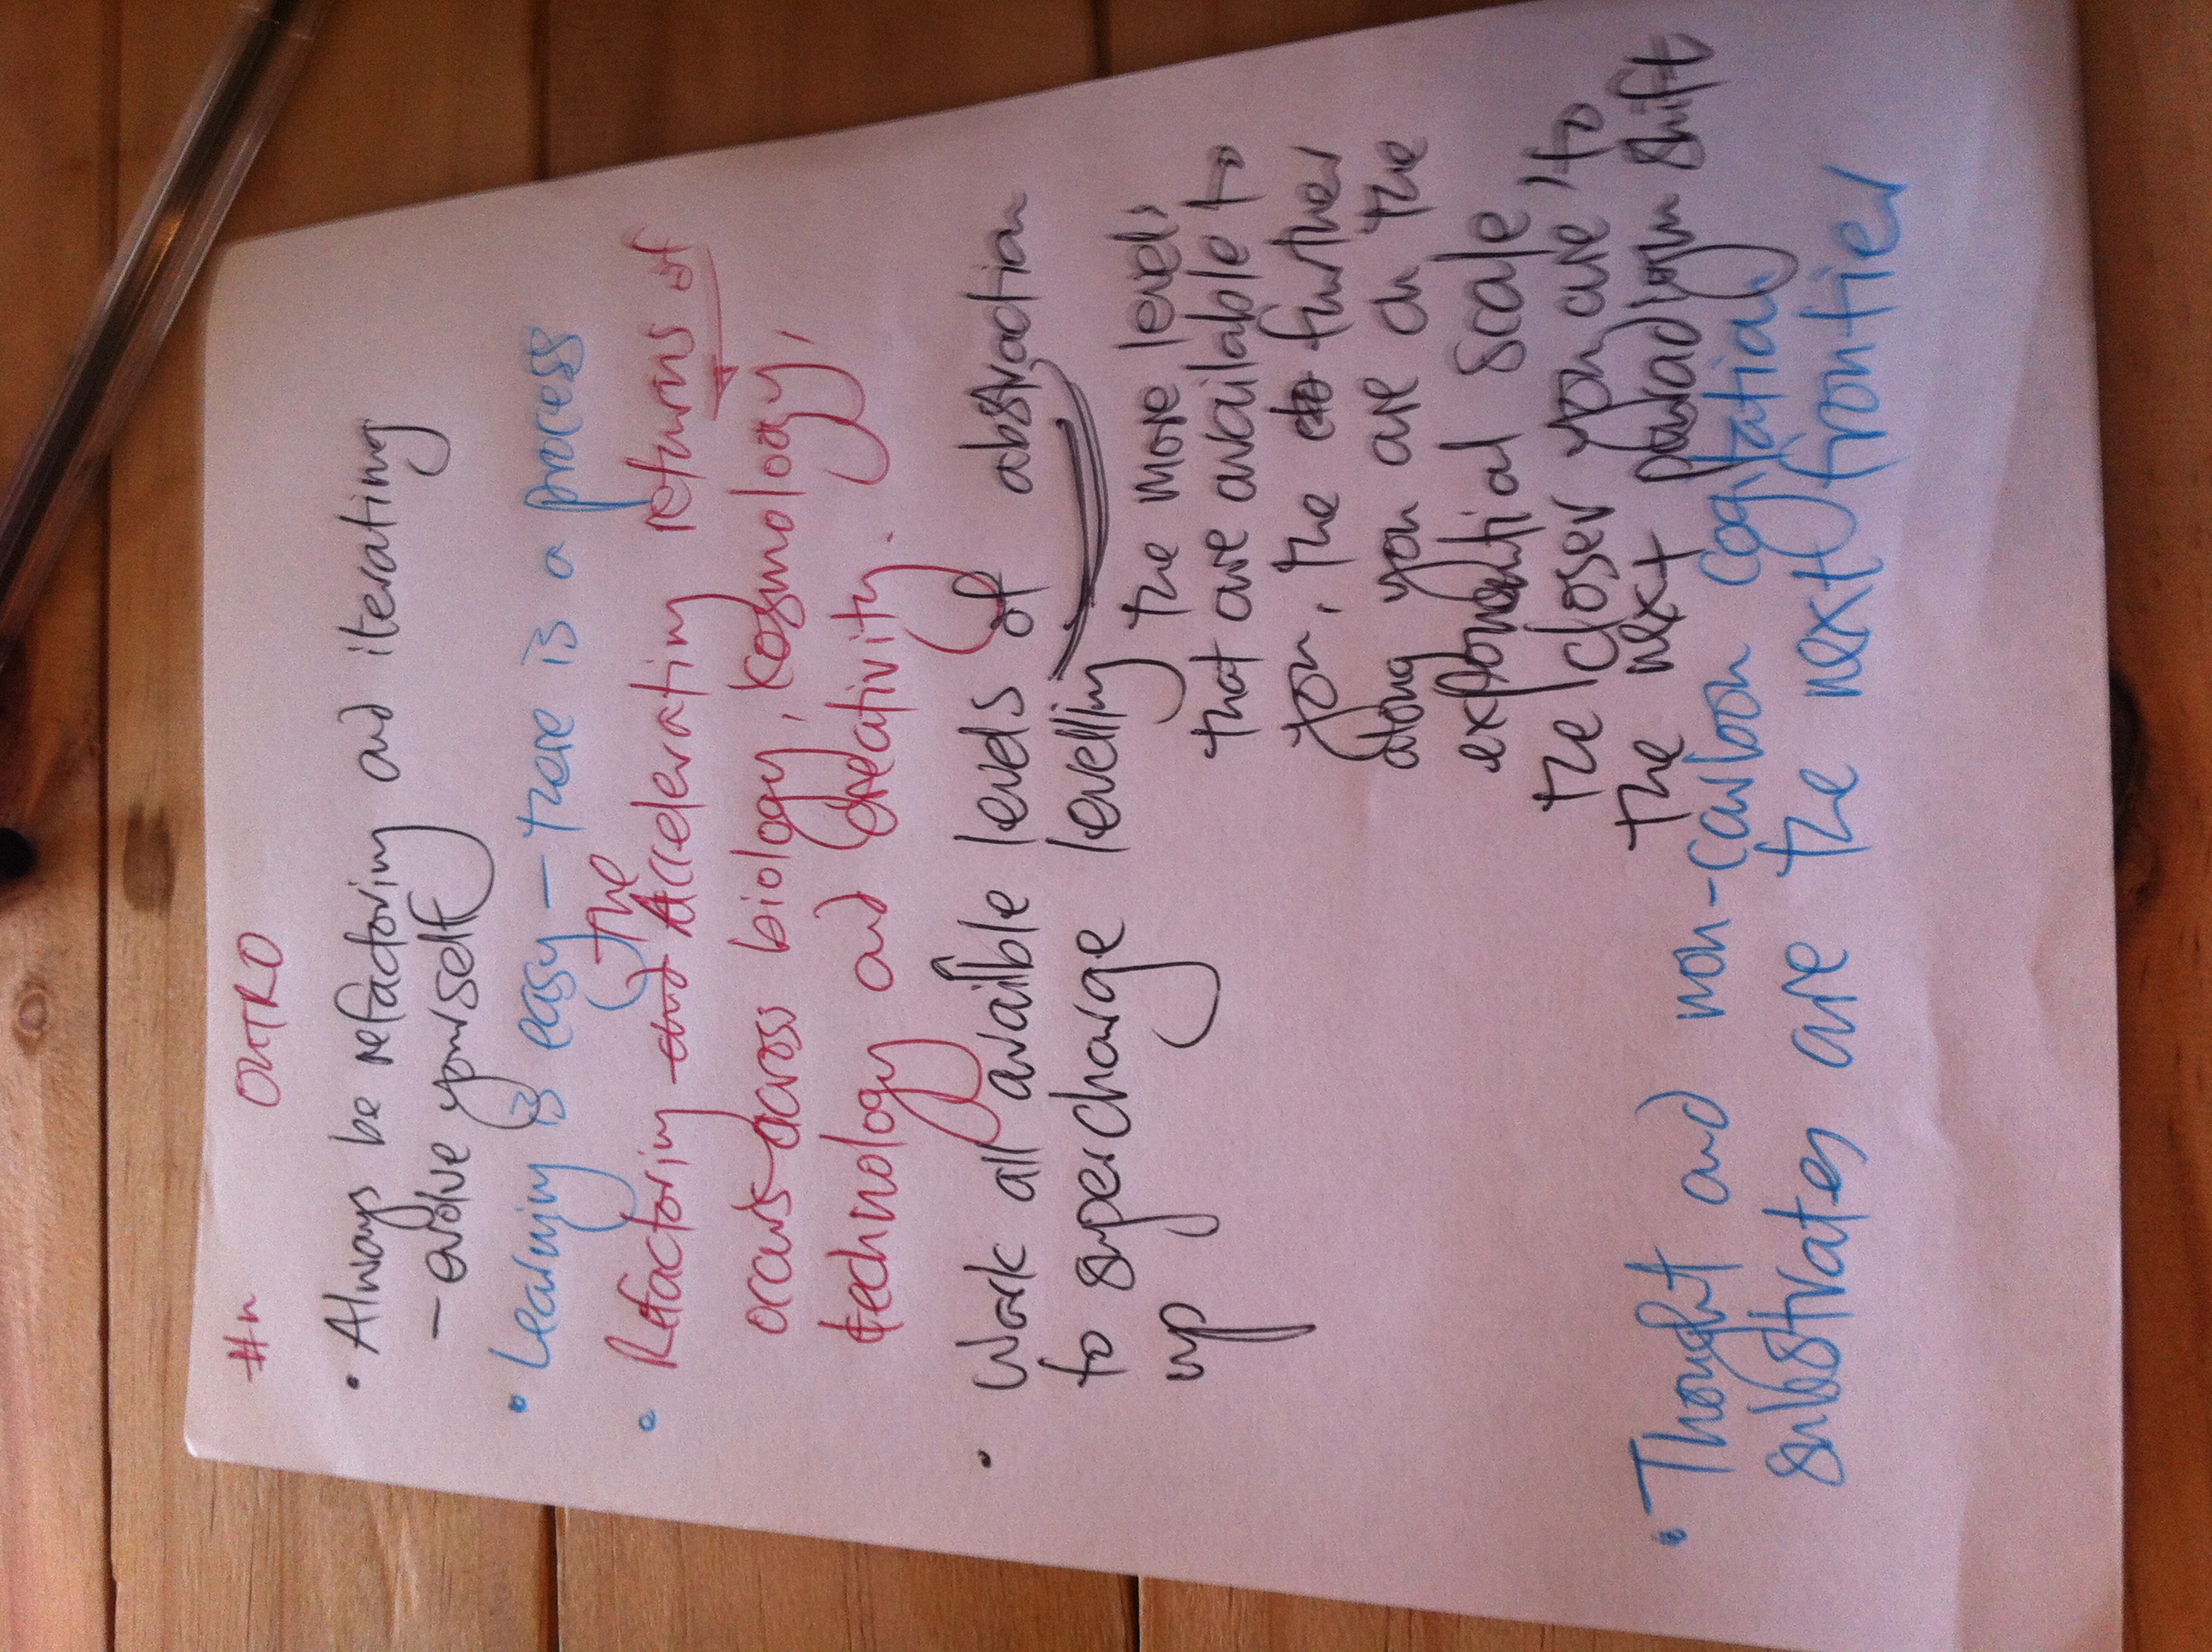 #n OUTRO
• Always be refactoring and iterating
– evolve yourself
• Learning is easy – there is a process
the
• Refactoring and Accelerating returns of
occurs across biology, kosmology,
technology and creativity.
• Work all availble levels of abstraction
to supercharge levelling
up
the more levels
that are available to
you, the further
along you are on the
exponential scale,
the closer you are to
the next paradigm shift
• Thought and non-carbon cogitation
substrates are the next frontier